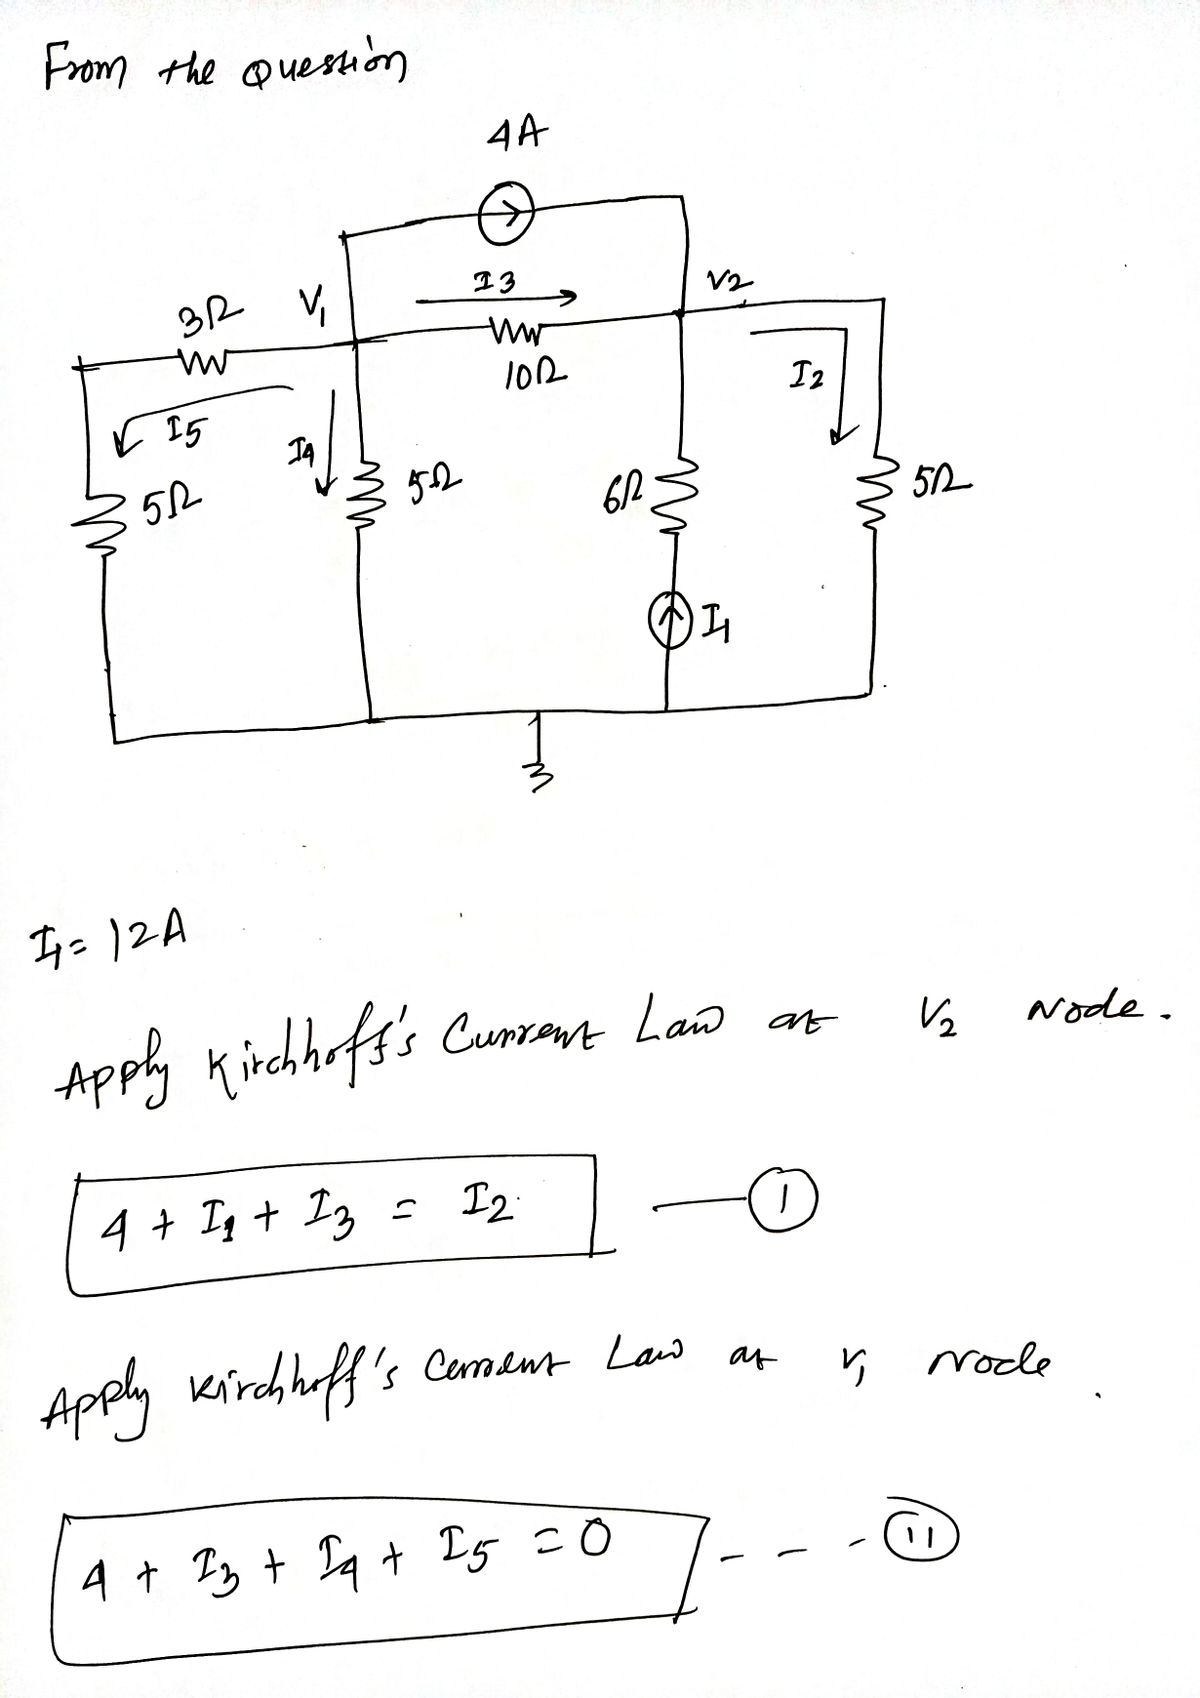 From the Question
4A
I3
V2
3Ω
V1
10Ω
I2
I5
I4
5Ω
5Ω
6Ω
5Ω
I1
I1 = 12A
Apply Kirchhoff's Current Law at V2 Node.
4 + I1 + I3 = I2
1
Apply Kirchhoff's Current Law at V1 Node.
4 + I3 + I4 + I5 = 0
11